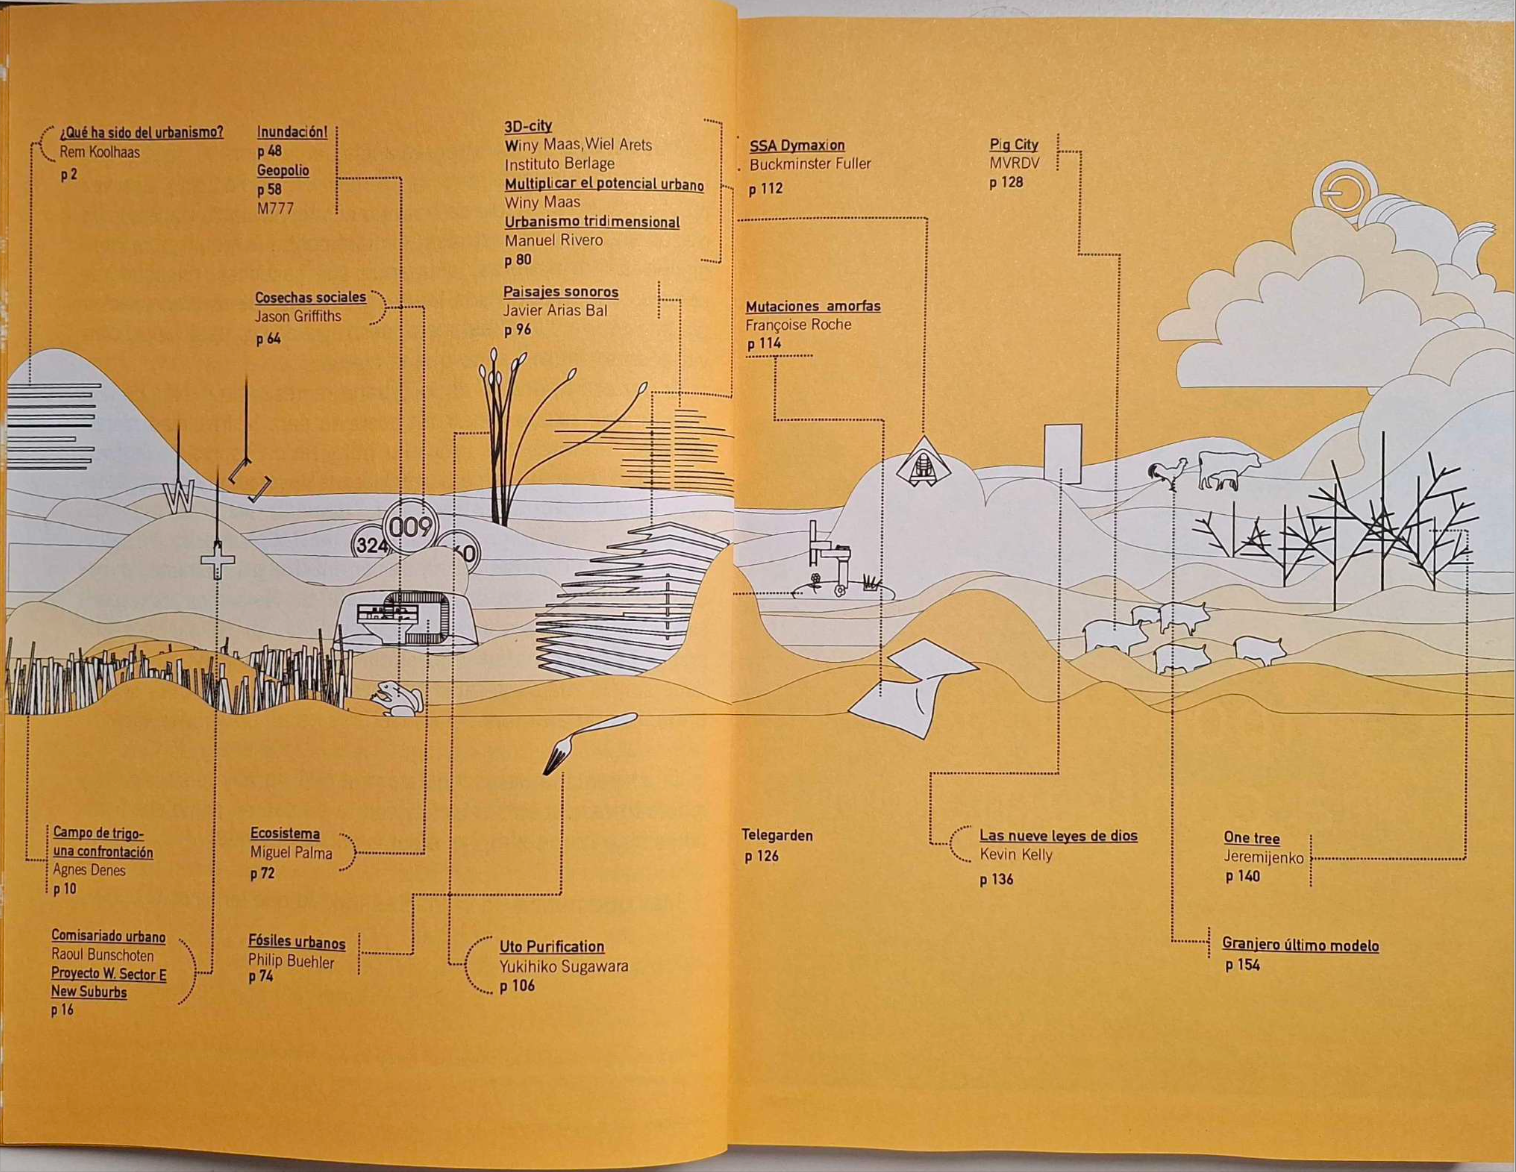 ¿Qué ha sido del urbanismo?
Rem Koolhaas
p 2
Inundación!
p 48
Geopolio
p 58
M777
Cosechas sociales
Jason Griffiths
p 64
3D-city
Winy Maas, Wiel Arets
Instituto Berlage
Multiplicar el potencial urbano
Winy Maas
Urbanismo tridimensional
Manuel Rivero
p 80
Paisajes sonoros
Javier Arias Bal
p 96
SSA Dymaxion
Buckminster Fuller
p 112
Mutaciones amorfas
Françoise Roche
p 114
Pig City
MVRDV
p 128
W
324
009
60
Campo de trigo-
una confrontación
Agnes Denes
p 10
Comisariado urbano
Raoul Bunschoten
Proyecto W. Sector E
New Suburbs
p 16
Ecosistema
Miguel Palma
p 72
Fósiles urbanos
Philip Buehler
p 74
Uto Purification
Yukihiko Sugawara
p 106
Telegarden
p 126
Las nueve leyes de dios
Kevin Kelly
p 136
One tree
Jeremijenko
p 140
Granjero último modelo
p 154